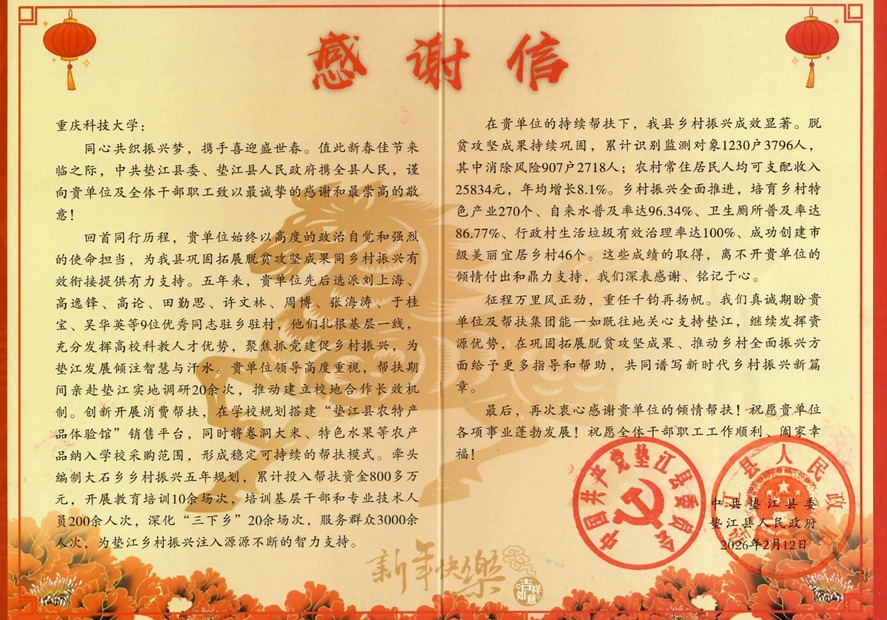 感谢信
重庆科技大学：
同心共织振兴梦，携手喜迎盛世春。值此新春佳节来
临之际，中共垫江县委、垫江县人民政府携全县人民，谨
向贵单位及全体干部职工致以最诚挚的感谢和最崇高的敬
意！
回首同行历程，贵单位始终以高度的政治自觉和强烈
的使命担当，为我县巩固拓展脱贫攻坚成果同乡村振兴有
效衔接提供有力支持。五年来，贵单位先后选派刘上海、
高逸锋、高论、田勤思、许文林、周博、张海涛、于桂
宝、吴华英等9位优秀同志驻乡驻村，他们扎根基层一线，
充分发挥高校科教人才优势，聚焦抓党建促乡村振兴，为
垫江发展倾注智慧与汗水。贵单位领导高度重视，帮扶期
间亲赴垫江实地调研20余次，推动建立校地合作长效机
制。创新开展消费帮扶，在学校规划搭建“垫江县农特产
品体验馆”销售平台，同时将卷洞大米、特色水果等农产
品纳入学校采购范围，形成稳定可持续的帮扶模式。牵头
编制大石乡乡村振兴五年规划，累计投入帮扶资金800多万
元，开展教育培训10余场次，培训基层干部和专业技术人
员200余人次，深化“三下乡”20余场次，服务群众3000余
人次，为垫江乡村振兴注入源源不断的智力支持。
在贵单位的持续帮扶下，我县乡村振兴成效显著。脱
贫攻坚成果持续巩固，累计识别监测对象1230户3796人，
其中消除风险907户2718人；农村常住居民人均可支配收入
25834元，年均增长8.1%。乡村振兴全面推进，培育乡村特
色产业270个、自来水普及率达96.34%、卫生厕所普及率达
86.77%、行政村生活垃圾有效治理率达100%、成功创建市
级美丽宜居乡村46个。这些成绩的取得，离不开贵单位的
倾情付出和鼎力支持，我们深表感谢、铭记于心。
征程万里风正劲，重任千钧再扬帆。我们真诚期盼贵
单位及帮扶集团能一如既往地关心支持垫江，继续发挥资
源优势，在巩固拓展脱贫攻坚成果、推动乡村全面振兴方
面给予更多指导和帮助，共同谱写新时代乡村振兴新篇
章。
最后，再次衷心感谢贵单位的倾情帮扶！祝愿贵单位
各项事业蓬勃发展！祝愿全体干部职工工作顺利、阖家幸
福！
中国共产党垫江县委员会
垫江县人民政府
中共垫江县委
垫江县人民政府
2026年2月12日
新年快樂
吉祥
如意